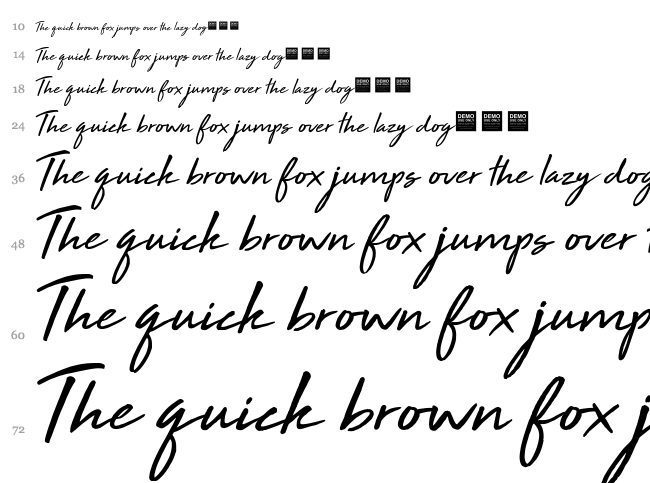 10 The quick brown fox jumps over the lazy dog
14 The quick brown fox jumps over the lazy dog
18 The quick brown fox jumps over the lazy dog DEMO USE ONLY DEMO USE ONLY DEMO USE ONLY
24 The quick brown fox jumps over the lazy dog DEMO USE ONLY DEMO USE ONLY DEMO USE ONLY
36 The quick brown fox jumps over the lazy dog
48 The quick brown fox jumps over
60 The quick brown fox jump
72 The quick brown fox j